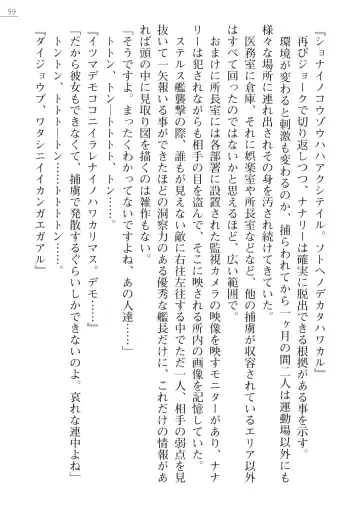 99
『ショナイノコウゾウハハアクシテイル。ソトヘノデカタハワカル』
再びジョークで切り返しつつ、ナナリーは確実に脱出できる根拠がある事を示す。
環境が変わると刺激も変わるのか、捕らわれてから一ヶ月の間二人は運動場以外にも
様々な場所に連れ出されその身を汚され続けてきていた。
医務室に倉庫、それに娯楽室や所長室などなど、他の捕虜が収容されているエリア以外
はすべて回ったのではないかと思えるほど、広い範囲で。
おまけに所長室には各部署に設置された監視カメラの映像を映すモニターがあり、ナナ
リーは犯されながらも相手の目を盗んで、そこに映される所内の画像を記憶していた。
ステルス艦襲撃の際、誰もが見えない敵に右往左往する中でただ一人、相手の弱点を見
抜いて一矢報いる事ができたほどの洞察力のある優秀な艦長だけに、これだけの情報があ
れば頭の中に見取り図を描くのは雑作もない。
「そうですよ。まったくわかってないですよね、あの人達……」
トトン、トン―トトトト、トン……
『イツマデモココニイラレナイノハワカリマス。デモ……』
「だから彼女もできなくて、捕虜で発散するぐらいしかできないのよ。哀れな連中よね」
トントン、トトトトン……―トトトトン……
『ダイジョウブ、ワタシニイイカンガエガアル』